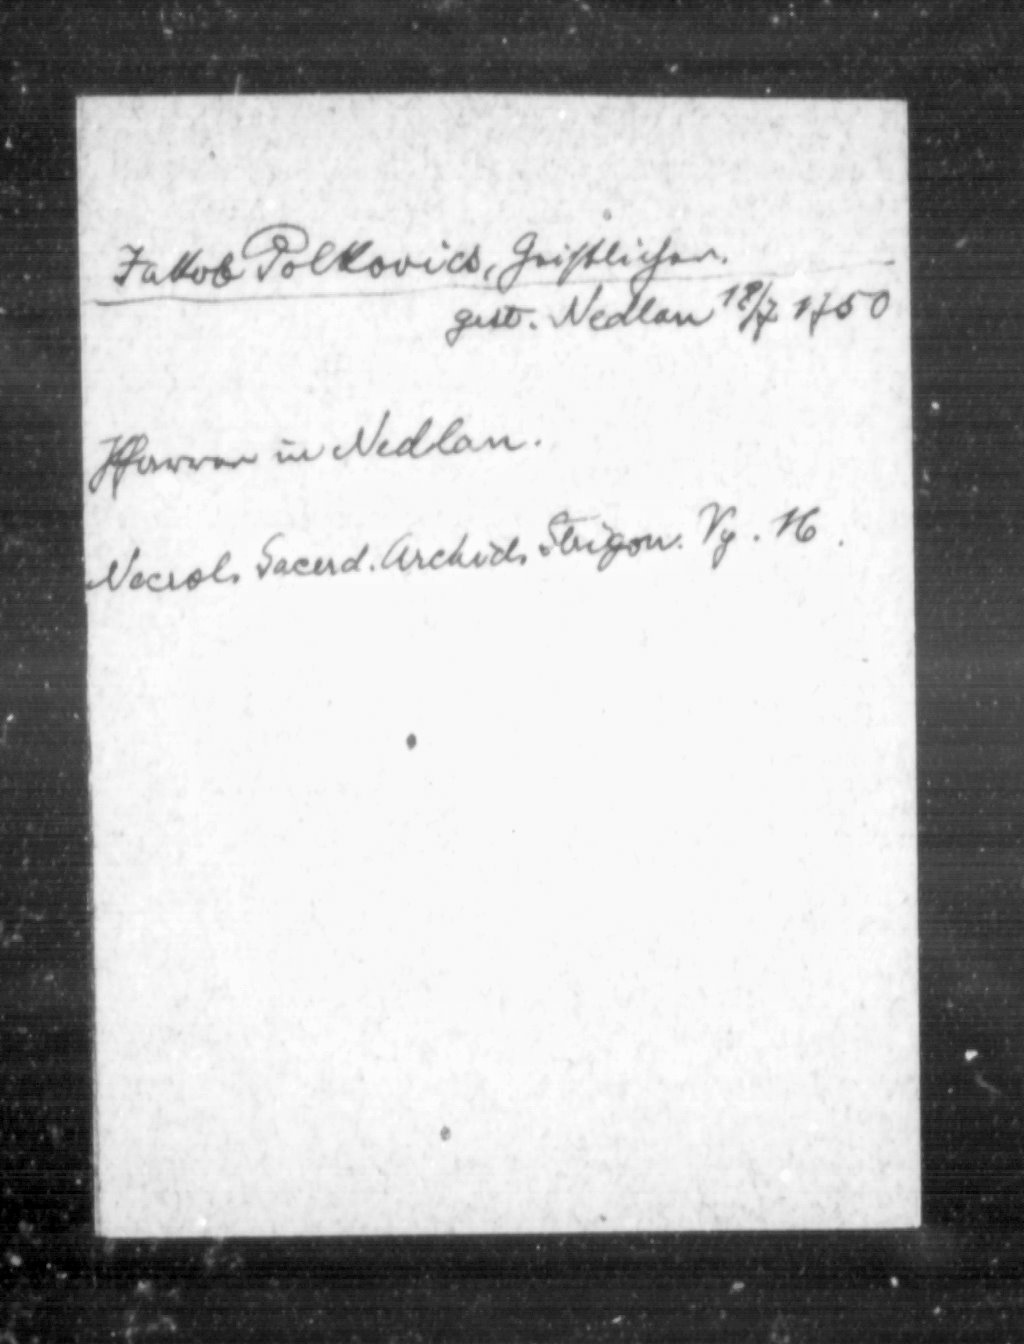 Jakob Polkovics, Geistlicher.
gest. Nedlan 18/7 1750
Pfarrer in Nedlan.
Necrol. Sacerd. Archid. Strigon. Vg. 16.